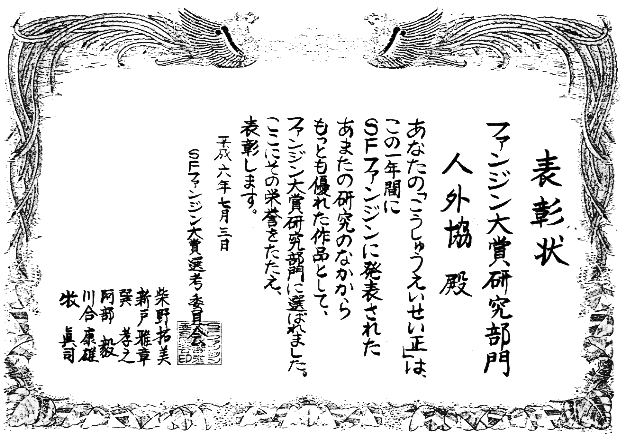 表彰状
ファンジン大賞研究部門
人外協 殿
あなたの「こうしゅうえいせい正」は、
この一年間に
SFファンジンに発表された
あまたの研究のなかから
もっとも優れた作品として、
ファンジン大賞研究部門に選ばれました。
ここにその栄誉をたたえ、
表彰します。
平成六年七月三日
SFファンジン大賞選考委員会
柴野拓美
新戸雅章
巽 孝之
阿部 毅
川合康雄
牧 眞司